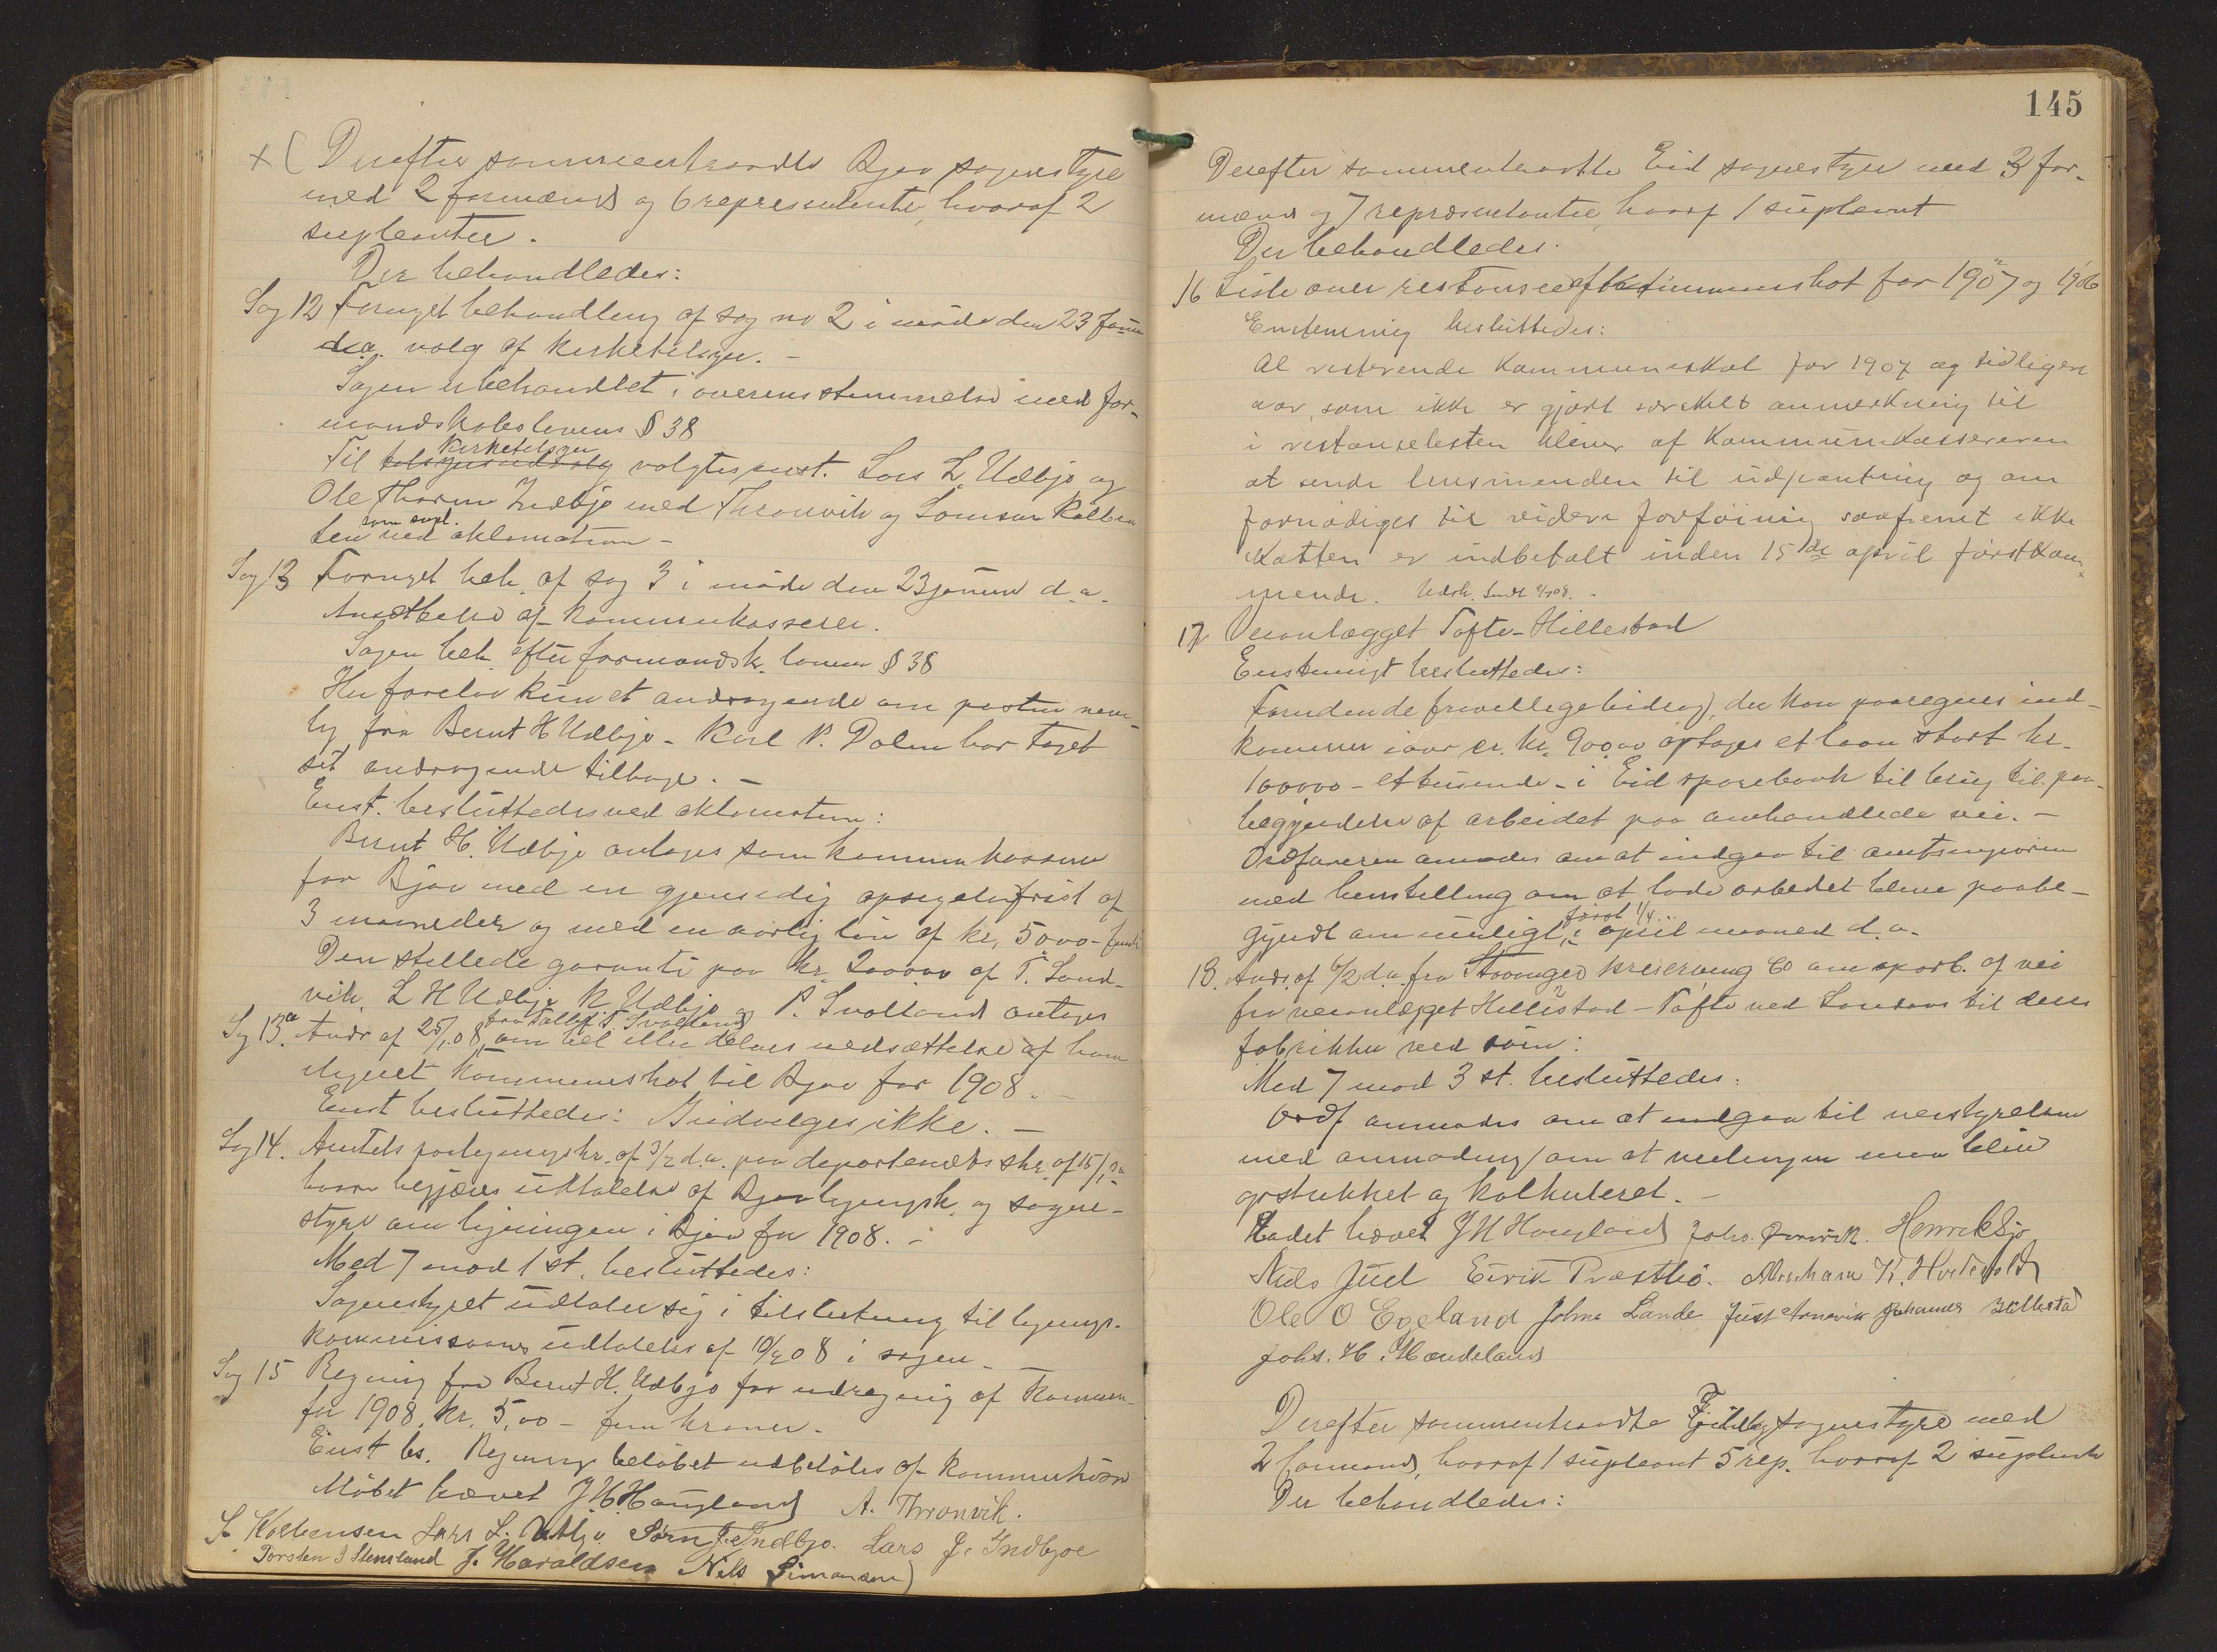 x ( Derefter sammentraadte Bjoa sognestyre
med 2 formænd og 6 representanter, hvoraf 2
supleanter.
Der behandledes:
Sag 12 Fornyet behandling af sag no 2 i møde den 23 janua
d.a. valg af kirketilsyn. -
Sagen er behandlet i overensstemmelse med for-
mandskabslovens § 38
kirketilsyn
Til valgtes enst. Lars L. Udbjo og
Ole Thorsen Indbjo med Thronvik og Kolben
som supl.
sen ved aklamation -
Sag 13 Fornyet beh. af sag 3 i møde den 23 januar d.a.
Ansættelse af kommunekasserer.
Sagen beh. efter formandsk. loven § 38
Her forelaa kun et andragende om posten nem-
lig fra Bernt H Udbjo - Karl P. Dalen har taget
sit andragende tilbage. -
Enst. besluttedes ved aklamation:
Bernt H. Udbjo antages som kommunekasserer
for Bjoa med en gjensidig opsigelsesfrist af
3 maaneder og med en aarlig løn af kr. 50,00 - femti
Den stillede garanti paa kr. 2000,00 af T. Sand-
vik, L H Udbjo, K Udbjo og P. Svolland antages
Sag 13a. Andr af 25/1 08 fra Tallef T. Svolland om hel eller delvis nedsættelse af ham
ilignet kommuneskat til Bjoa for 1908. -
Enst besluttedes: Indvilges ikke. -
Sag 14. Amtets paategningskr. af 3/2 d.a. paa departemets skr. af 15/1 d.a.
hvori begjæres udtalelse af Bjoa ligningsk. og sogne-
styre om ligningen i Bjoa for 1908. -
Med 7 mod 1 st. besluttedes:
Sognestyret udtaler sig i tilslutning til lignings-
kommissionens udtalelse af 10/2 08 i sagen. -
Sag 15 Regning fra Bernt H. Udbjo for udregning af kommun-
for 1908. kr. 5,00 - fem kroner.
Enst bs. Regnings beløbet udbetales af kommunekassen
Mødet hævet J H Haugland A. Thronvik.
S. Kolbensen Lars L. Udbjo Sørn J. Indbjo. Lars J. Indbjoe
Torsten I Stensland J. Haraldsen Nils Simonsen
145
Derefter sammentraadte Eid sognestyre med 3 for-
mænd og 7 repræsentanter, hvoraf 1 supleant
Der behandledes:
16 Liste over restancer af kommuneskat for 1907 og 1906
Enstemmig besluttedes:
Al resterende kommuneskat for 1907 og tidligere
aar, som ikke er gjort særskilt anmerkning til
i restanselisten bliver af Kommunekassereren
at sende lensmanden til udpantning og om
fornødiges til videre forføining saafremt ikke
skatten er indbetalt inden 15de april førstkom-
mende. Udsk. sendt
17 Veianlægget Tofte - Hillestad
Enstemigt besluttedes:
Foruden de frivillige bidrag, der kan paaregnes ind-
komme iaar ca. kr. 900,00 optages et laan stort kr.
1000,00 - et tusende - i Eid sparebank til brug til paa-
begyndelse af arbeidet paa omhandlede vei. -
Ordføreren anmodes om at indgaa til amtsingeniøren
med henstilling om at lade arbeidet blive paabe-
gyndt om muligt, først 1/4 i april maaned d.a.
18. Andr. af 6/2 d.a. fra Stavanger preserving Co om oparb. af vei
fra veianlægget Hillestad - Tofte ved Landaas til dens
fabrikker ved søin:
Med 7 mod 3 st. besluttedes:
Ordf. anmodes om at indgaa til veistyrelsen
med anmodning om at veilinjen maa blive
opstukket og kalkuleret. -
Mødet hævet J H Haugland Johs. Innvik. Henrik Sjo
Nils Juel Eirik Præsthø. Abraham K. Hustvedt
Ole O Egeland Johne Lande Just Arnevik Johannes Hillestad
Johs. H. Handeland
Derefter sammentraadte Fjelberg sognestyre med
2 formænd, hvoraf 1 supleant 5 rep. hvoraf 2 supleanter
Der behandledes: